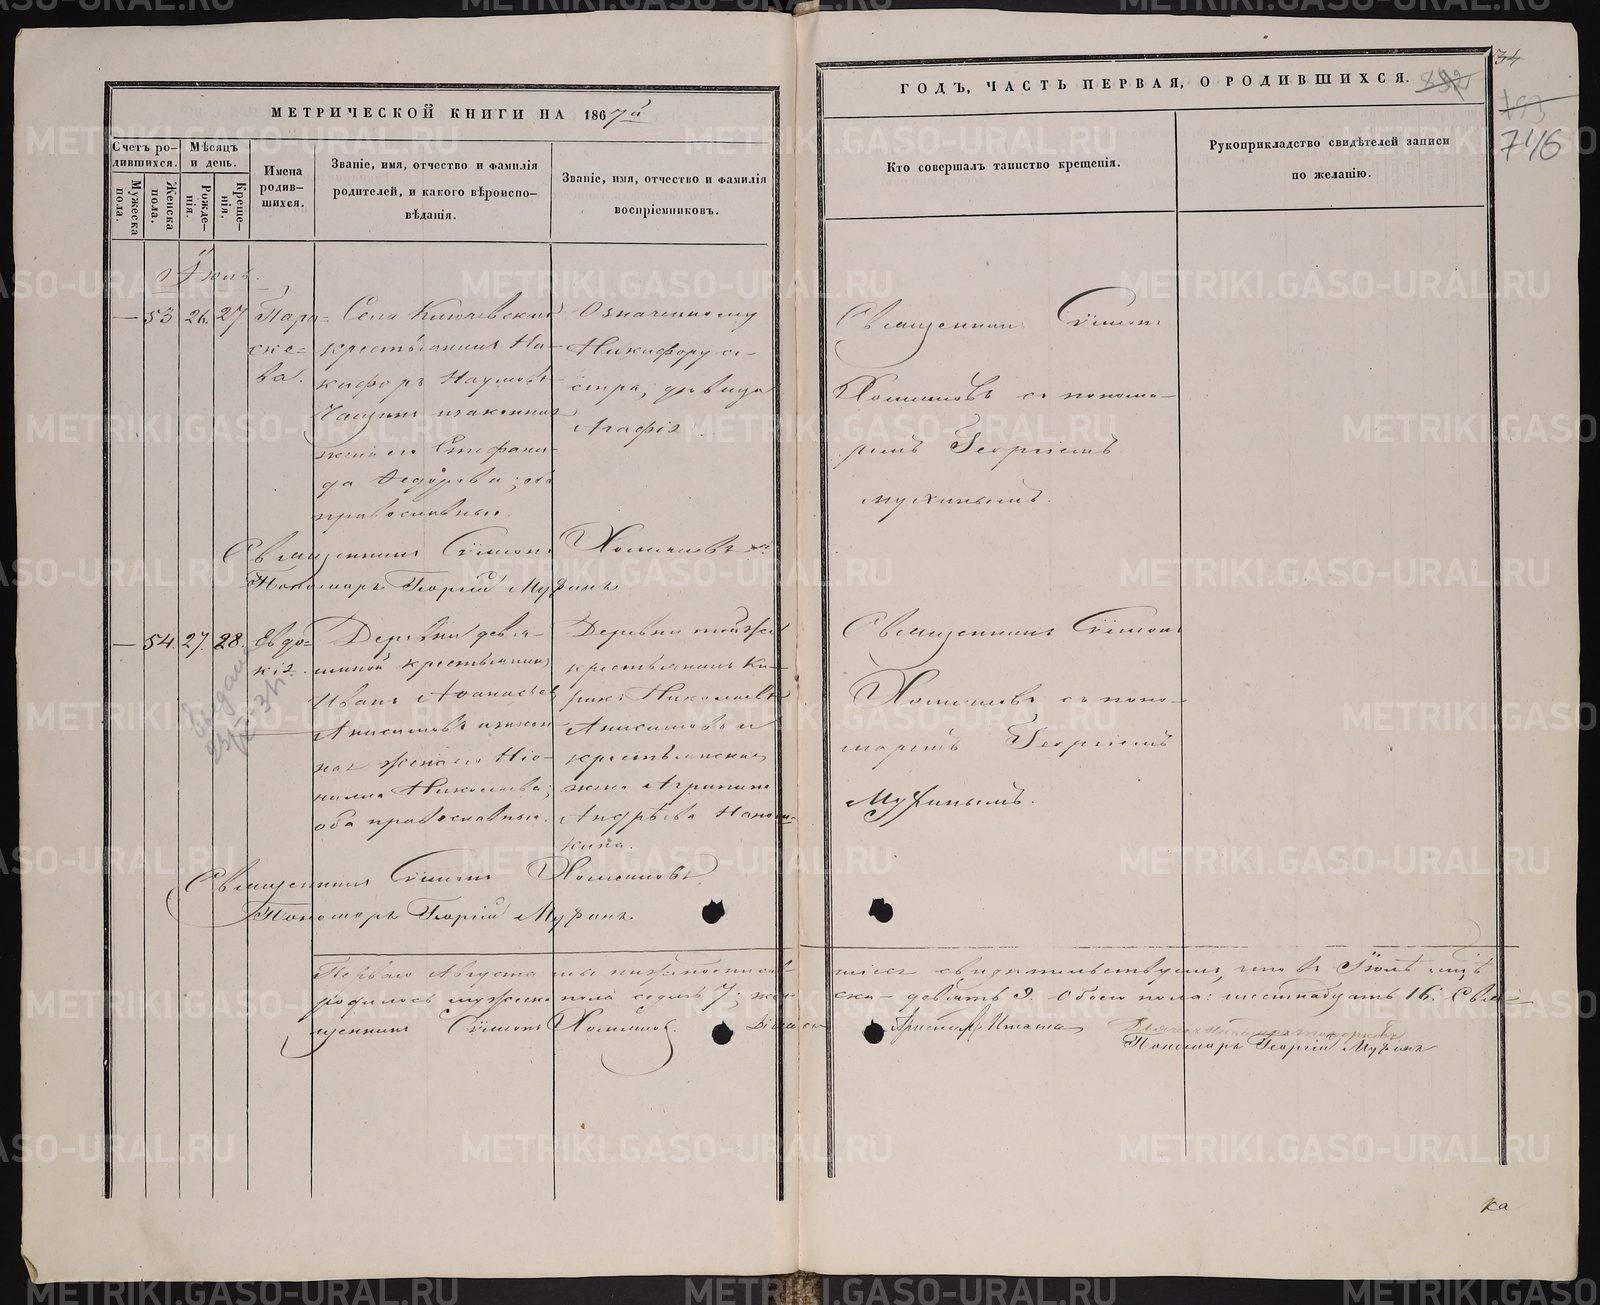 МЕТРИЧЕСКОЙ КНИГИ НА 1867й
ГОДЪ, ЧАСТЬ ПЕРВАЯ, О РОДИВШИХСЯ.
34
746
Счетъ ро-
дившихся.
Мужеска
пола.
Женска
пола.
Мѣсяцъ
и день.
Рожде-
нія.
Креще-
нія.
Имена
родив-
шихся.
Званіе, имя, отчество и фамилія
родителей, и какого вѣроиспо-
вѣданія.
Званіе, имя, отчество и фамилія
воспріемниковъ.
Кто совершалъ таинство крещенія.
Рукоприкладство свидѣтелей записи
по желанію.
— 53 26. 27
Пара=
ске=
ва.
Села Ключевскаго
крестьянинъ Ни-
кифоръ Наумовъ
и законная
жена его Стефани-
да Ѳедорова; оба
православные.
Означенному
Никифору се-
стра, дѣвица
Агафія.
Священникъ Сѵмеонъ
Хомяковъ съ понома-
ремъ Георгіемъ
Мухинымъ.
Священникъ Сѵмеонъ Хомяковъ
Пономарь Георгій Мухинъ
— 54. 27. 28.
Евдо=
кія.
Деревни Девя-
шиной крестьянинъ
Иванъ Аѳанасьев
Анисимовъ и закон
ная жена его Нео-
нилла Николаева;
оба православные.
Деревни той же
крестьянинъ Ки-
рикъ Николаевъ
Анисимовъ и
крестьянская
жена Агрипина
Андрѣева
Священникъ Сѵмеонъ
Хомяковъ съ поно-
маремъ Георгіемъ
Мухинымъ.
Священникъ Сѵмеонъ Хомяковъ
Пономарь Георгій Мухинъ
Перваго Августа мы нижеподписав
шіеся свидѣтельствуемъ, что въ Іюлѣ мцѣ
родилось мужеска пола седмь 7; жен-
ска – девять 9. Обоего пола: шестнадцать 16. Свя-
щенникъ Сѵмеонъ Хомяковъ.
Пономарь Георгій Мухинъ
ка